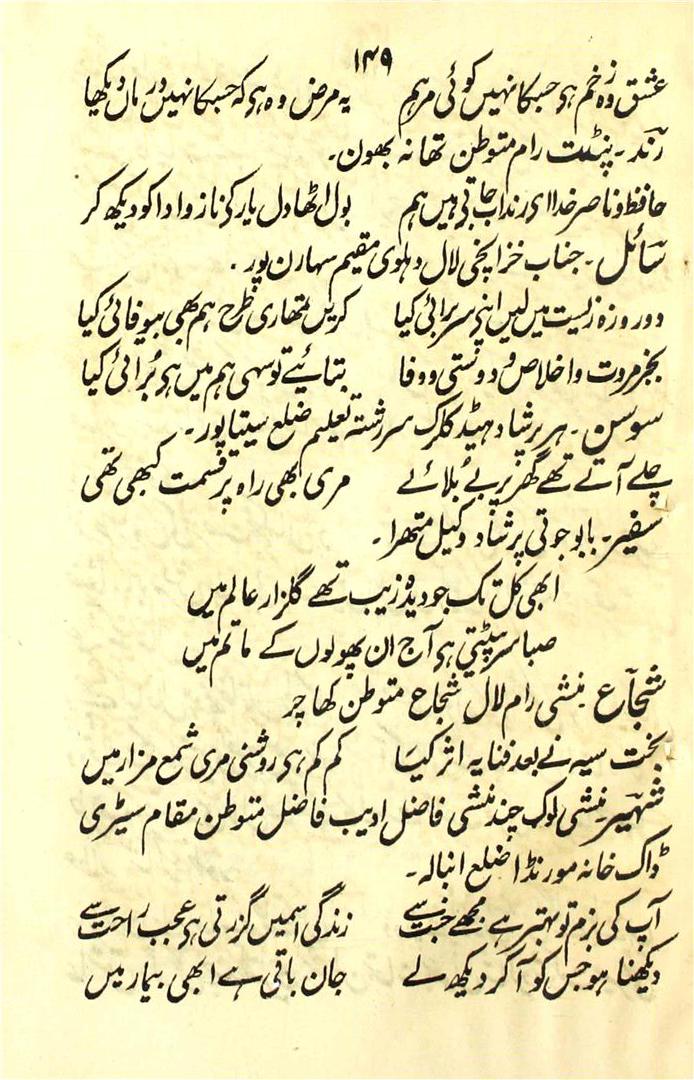 ۱۴۹
عشق وہ زخم ہی جسکا نہیں کوئی مرہم یہ مرض وہ ہی کہ جسکا نہیں درماں دیکھا
رند۔ پنڈت رام متوطن تھانہ بھون۔
حافظ و ناصر خدا ای رند اب جاتی ہیں ہم بول اٹھا دل یار کی ناز و ادا کو دیکھ کر
سائل۔ جناب خزانچی لال دہلوی مقیم سہارن پور۔
دو روزہ زیست میں لیں اپنی سر برائی کیا کریں تمھاری طرح ہم بھی بیوفائی کیا
بجز مروت و اخلاص و دوستی و وفا بتائیے تو سہی ہم میں ہی بُرائی کیا
سوسن۔ ہر پرشاد ہیڈ کلرک سررشتہ تعلیم ضلع سیتاپور۔
چلے آتے تھے گھر پر بے بُلائے مری بھی راہ پر قسمت کبھی تھی
سفیر۔ بابو جوتی پرشاد وکیل متھرا۔
ابھی کل تک جو دیدہ زیب تھے گلزار عالم میں
صبا سر پیٹتی ہی آج ان پھولوں کے ماتم میں
شجاع منشی رام لال شجاع متوطن کھاچر
بخت سیہ نے بعد فنا یہ اثر کیا کم کم ہی روشنی مری شمع مزار میں
شہیر۔ منشی لوک چند منشی فاضل ادیب فاضل متوطن مقام سیڑی
ڈاک خانہ مورنڈا ضلع انبالہ۔
آپ کی بزم تو بہتر ہے مجھے جنت سے زندگی اسمیں گزرتی ہی عجب راحت سے
دیکھنا ہو جس کو آ کر دیکھ لے جان باقی ہے ابھی بیمار میں